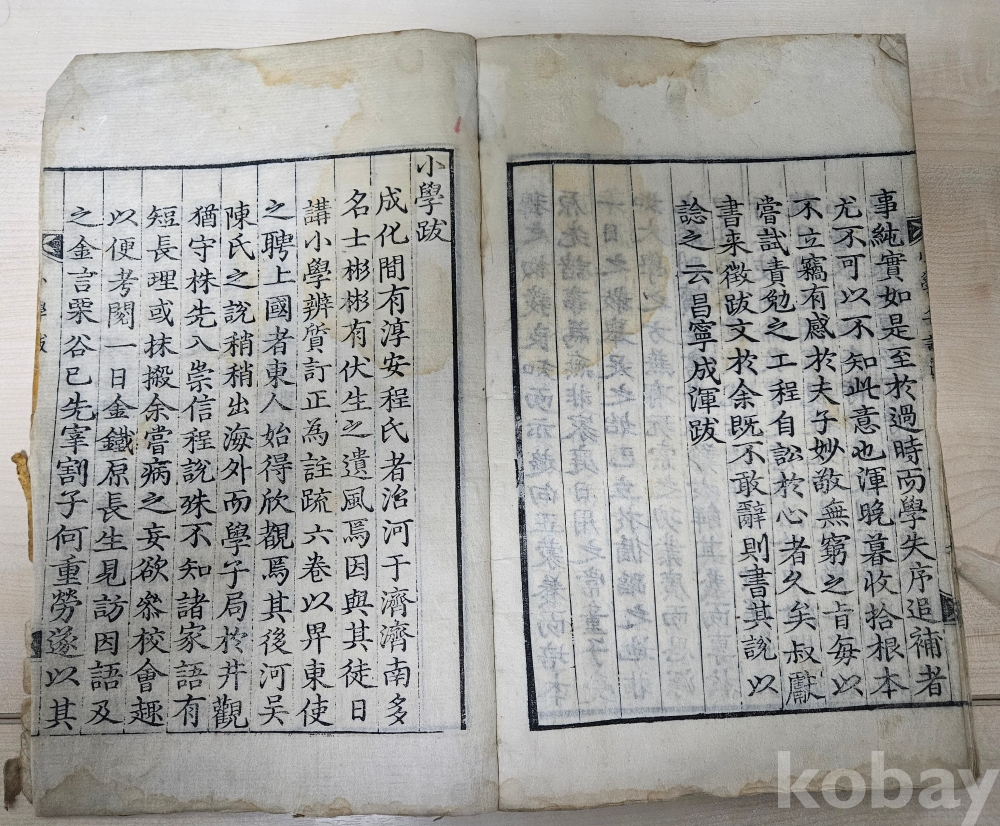 事純實如是至於過時而學失序追補者
尤不可以不知此意也渾晚暮收拾根本
不立竊有感於夫子妙敬無窮之旨每以
嘗試責勉之工程自訟於心者久矣叔獻
書来徵跋文於余既不敢辭則書其說以
諗之云昌寧成渾跋
小學跋
成化間有淳安程氏者治河于濟濟南多
名士彬彬有伏生之遺風焉因與其徒日
講小學辨質訂正為註疏六卷以畀東使
之聘上國者東人始得欣觀焉其後河吴
陳氏之說稍稍出海外而學子局於井觀
猶守株先入崇信程說殊不知諸家語有
短長理或抹搬余嘗病之妄欲叅校會趣
以便考閱一日金鐵原長生見訪因語及
之金言栗谷已先宰割子何重勞遂以其
kobay